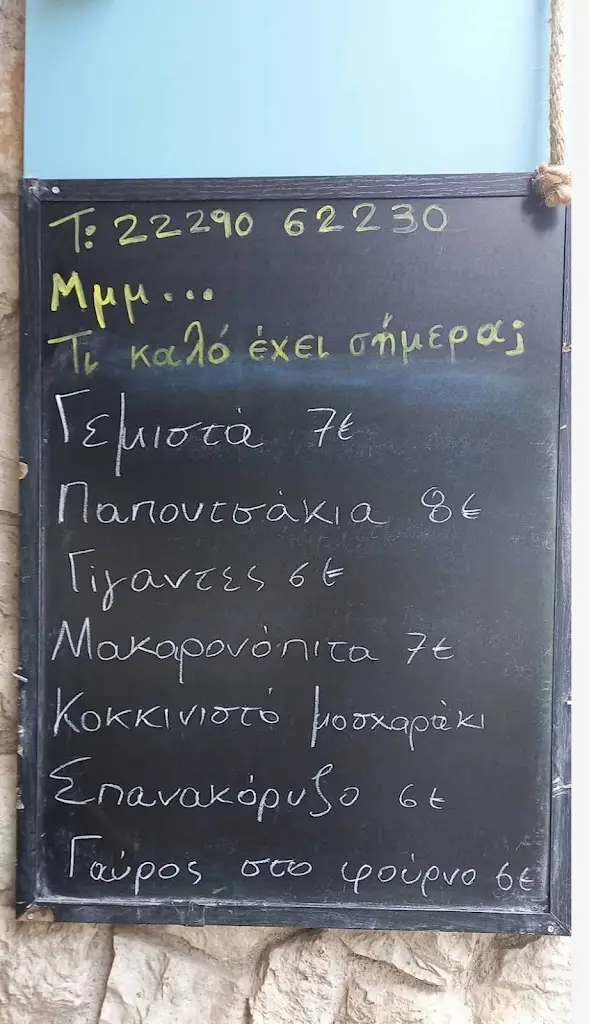 Τ: 22290 62230
Μμμ...
Τι καλό έχει σήμερα;
Γεμιστά 7€
Παπουτσάκια 8€
Γίγαντες 6€
Μακαρονόπιτα 7€
Κοκκινιστό μοσχαράκι
Σπανακόρυζο 6€
Γαύρος στο φούρνο 6€